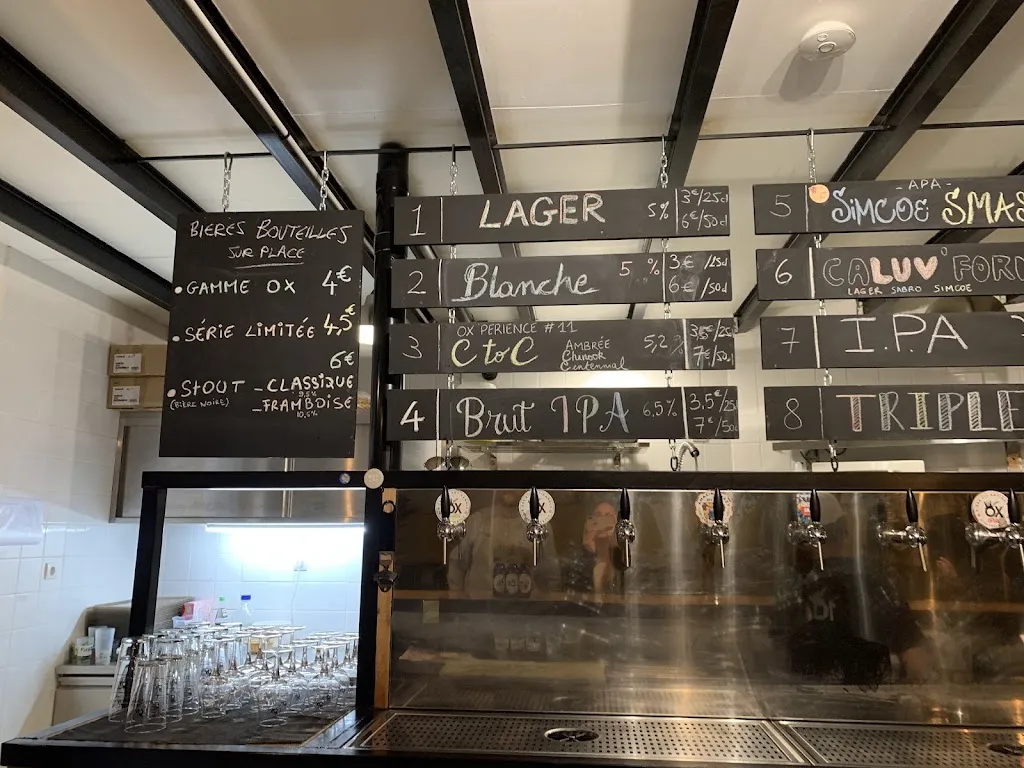 BIERES BOUTEILLES
SUR PLACE
• GAMME OX 4€
• SÉRIE LIMITÉE 4,5€
6€
• STOUT - CLASSIQUE
9,5%
(BIÈRE NOIRE) - FRAMBOISE
10,5%
1 LAGER 5% 3€/25cl
6€/50cl
2 Blanche 5 % 3€ /25cl
6€ /50cl
3 OX PERIENCE #11
C to C AMBRÉE 5,2 %
Chinook
Centennial
7€/50cl
4 Brut IPA 6,5% 3,5€/25
7€/50c
5 - APA -
SiMCOE SMAS
6 CALUV'FORN
LAGER SABRO SIMCOE
7 I.P.A
8 TRIPLE
OX
OX
OX